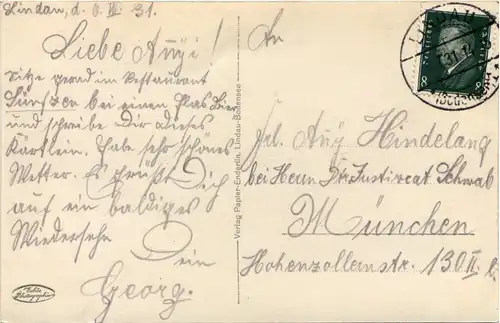 Lindau, d. 6. III. 31.
Liebe Anni!
Sitze grad im Restaurant
bei einen Glas Bier
und schreibe Dir dieses
Kärtlein. Habe sehr schönes
Wetter. Es grüßt Dich
auf ein baldiges
Wiedersehn
Dein
Georg.
Echte Photographie
Verlag Papier-Enderlin, Lindau-Bodensee
An
Hindelang
bei Herrn Dr. Justizrat Schwab
München
Hohenzollernstr. 130 II
LINDAU
8